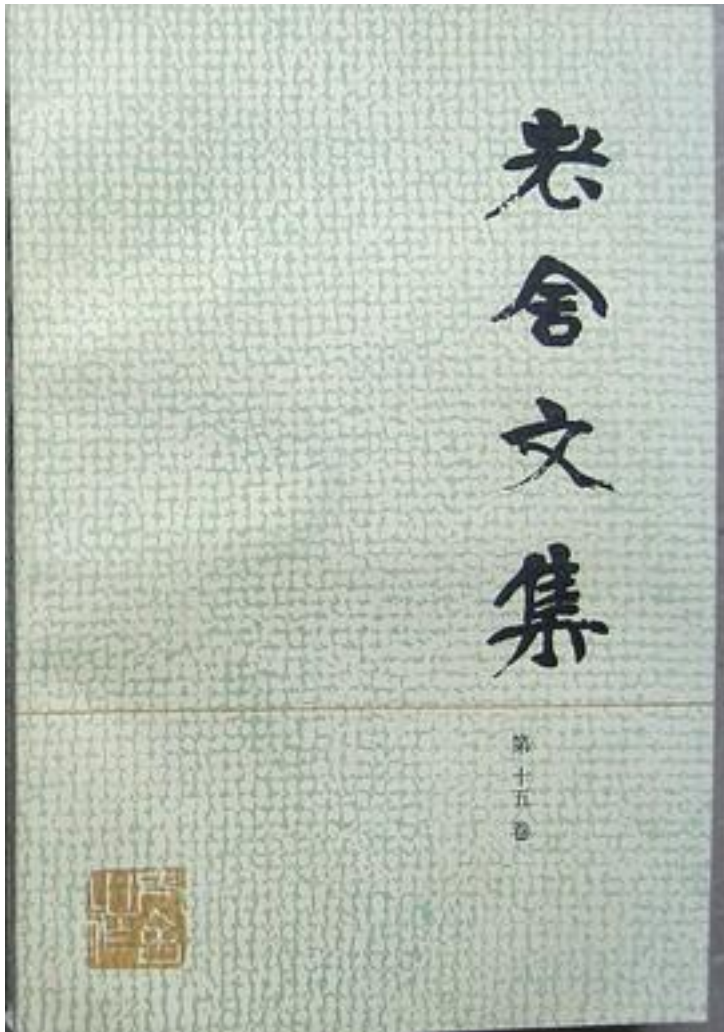 老舍文集
第十五卷